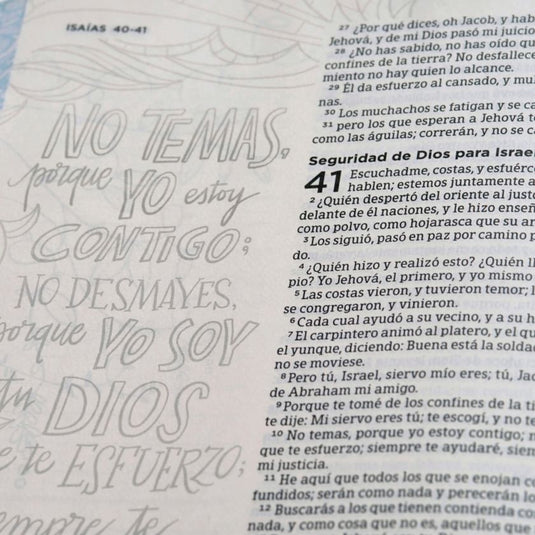 ISAÍAS 40-41
NO TEMAS,
porque YO estoy
CONTIGO;
NO DESMAYES,
porque YO SOY
tu DIOS
te ESFUERZO;
siempre te
27 ¿Por qué dices, oh Jacob, y
Jehová, y de mi Dios pasó mi juicio
28 ¿No has sabido, no has oído
confines de la tierra? No desfallece
miento no hay quien lo alcance.
29 Él da esfuerzo al cansado, y
nas.
30 Los muchachos se fatigan y se
31 pero los que esperan a Jehová
como las águilas; correrán, y no se
Seguridad de Dios para Israel
41 Escuchadme, costas, y
hablen; estemos juntamente a
2 ¿Quién despertó del oriente al justo
delante de él naciones, y le hizo
como polvo, como hojarasca que su
3 Los siguió, pasó en paz por camino
do.
4 ¿Quién hizo y realizó esto? ¿Quién
pio? Yo Jehová, el primero, y yo mismo
5 Las costas vieron, y tuvieron temor;
se congregaron, y vinieron.
6 Cada cual ayudó a su vecino, y a su
7 El carpintero animó al platero, y el
el yunque, diciendo: Buena está la
no se moviese.
8 Pero tú, Israel, siervo mío eres; tú,
de Abraham mi amigo.
9 Porque te tomé de los confines de la
te dije: Mi siervo eres tú; te escogí, y no
10 No temas, porque yo estoy contigo;
que te esfuerzo; siempre te ayudaré,
mi justicia.
11 He aquí que todos los que se enojan
fundidos; serán como nada y perecerán
12 Buscarás a los que tienen contienda
nada, y como cosa que no es, aquellos que